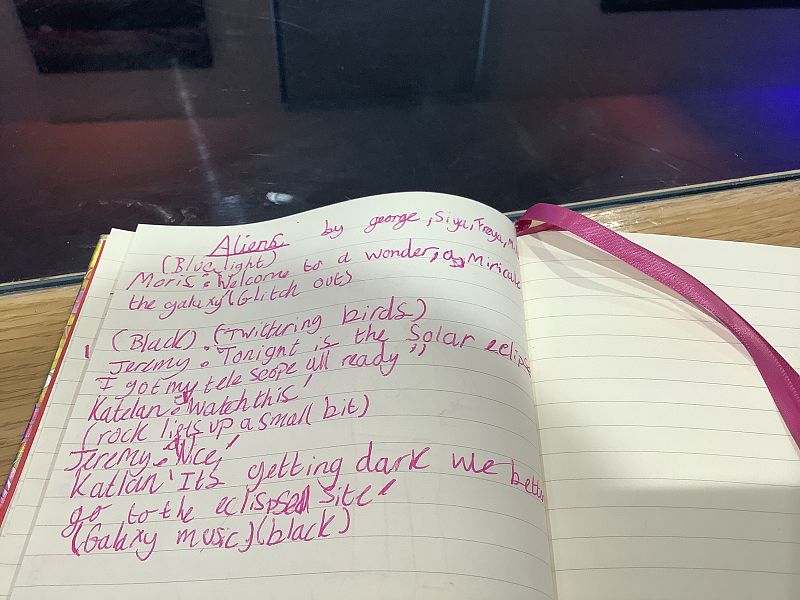 Aliens by george, Siya, Freya, M
(Blue light)
Moris: Welcome to a wonder, a Miricale
the galaxy (Glitch out)
(Black). (Twittering birds)
Jeremy: Tonight is the Solar eclips
I got my telescope all ready''
Katelan: Watch this!
(rock lifts up a small bit)
Jeremy: Nice!
Katlan 'Its getting dark we bette
go to the eclipsed site!
(Galaxy music) (black)